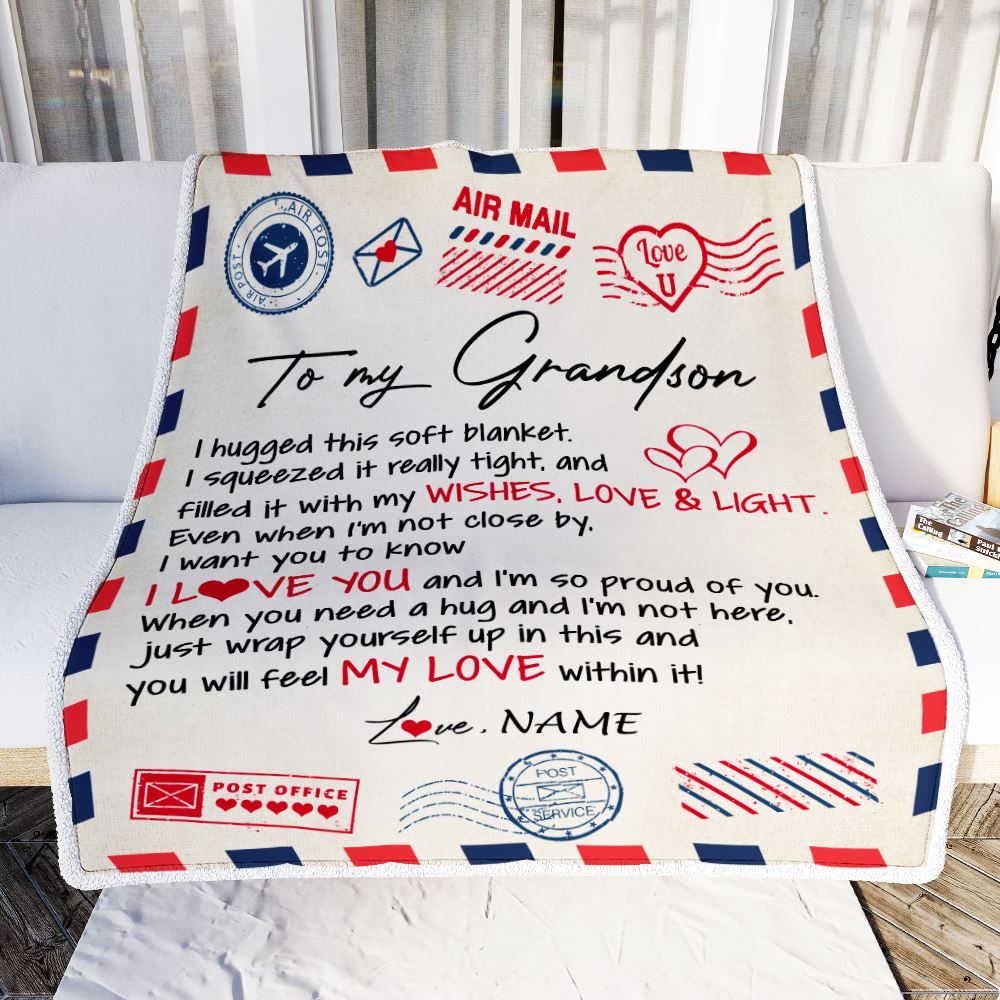 AIR POST
AIR POST
AIR MAIL
Love
U
To my Grandson
I hugged this soft blanket.
I squeezed it really tight, and
filled it with my WISHES, LOVE & LIGHT.
Even when I'm not close by,
I want you to know
I L❤VE YOU and I'm so proud of you.
When you need a hug and I'm not here,
just wrap yourself up in this and
you will feel MY LOVE within it!
L❤ve, NAME
POST OFFICE
POST
SERVICE
The
Calling